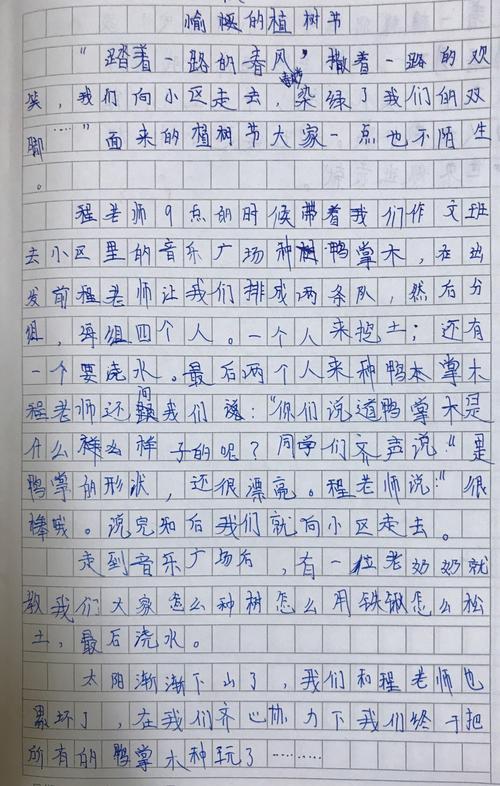 愉快的植树节
“踏着一路的春风，撒着一路的欢
笑，我们向小区走去，春染绿了我们的双
脚……”面来的植树节大家一点也不陌生
。
程老师9点的时候带着我们作文班
去小区里的音乐广场种鸭掌木，在出
发前程老师让我们排成两条队，然后分
组，每组四个人。一个人来挖土；还有
一个要浇水。最后两个人来种鸭本掌木
程老师还问我们说：“你们说道鸭掌木是
什么样么样子的呢？同学们齐声说：“是
鸭掌的形状，还很漂亮。程老师说：“很
棒哦。说完和后我们就向小区走去。
走到音乐广场后，有一位老奶奶就
教我们大家怎么种树怎么用铁锹怎么松
土，最后浇水。
太阳渐渐下山了，我们和程老师也
累坏了，在我们齐心协力下我们终于把
所有的鸭掌木种玩了………